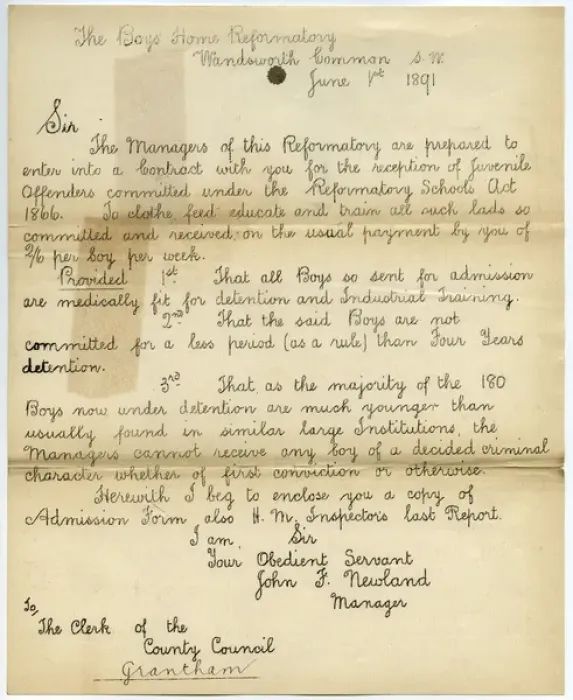 The Boys Home Reformatory
Wandsworth Common S.W.
June 1st 1891
Sir
The Managers of this Reformatory are prepared to
enter into a Contract with you for the reception of Juvenile
Offenders committed under the Reformatory Schools Act
1866. To clothe, feed educate and train all such lads so
committed and received, on the usual payment by you of
2/6 per boy per week.
Provided 1st. That all Boys so sent for admission
are medically fit for detention and Industrial Training.
2nd. That the said Boys are not
committed for a less period (as a rule) than Four Years
detention.
3rd. That, as the majority of the 180
Boys now under detention are much younger than
usually found in similar large Institutions, the
Managers cannot receive any boy of a decided criminal
character whether of first conviction or otherwise.
Herewith I beg to enclose you a copy of
Admission Form also H.M. Inspector's last Report.
I am, Sir
Your Obedient Servant
John F. Newland
Manager
To,
The Clerk of the
County Council
Grantham